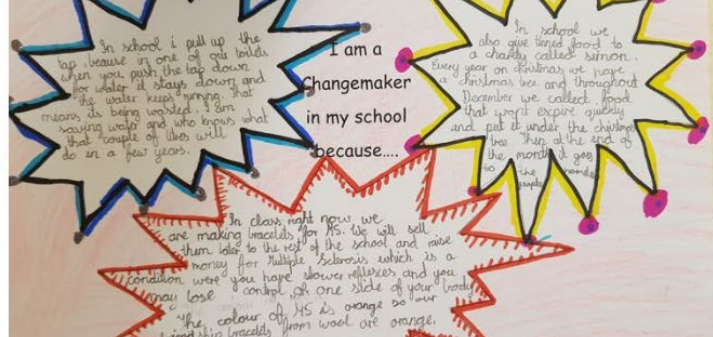 In school i pull up the
tap, beause in one of our toilets
when you push the tap down
for water it stays down and
the water keeps running. That
means its being wasted. I am
saving water and who knows what
that couple of litres will
do in a few years.
I am a
Changemaker
in my school
because....
In school we
also give tinned food to
a charity called simon.
Every year on christmas we have
a christmas tree and throughout
December we collect food
that wont expire quickly
and put it under the christmas
tree then at the end of
the month it goes
to the
people
In class right now we
are making bracelets for MS. We will sell
them later to the rest of the school and raise
money for Multiple Sclerosis which is a
condition were you have slower reflexes and you
may lose control of one side of your body
The colour of MS is orange so our
bracelets from wool are orange.